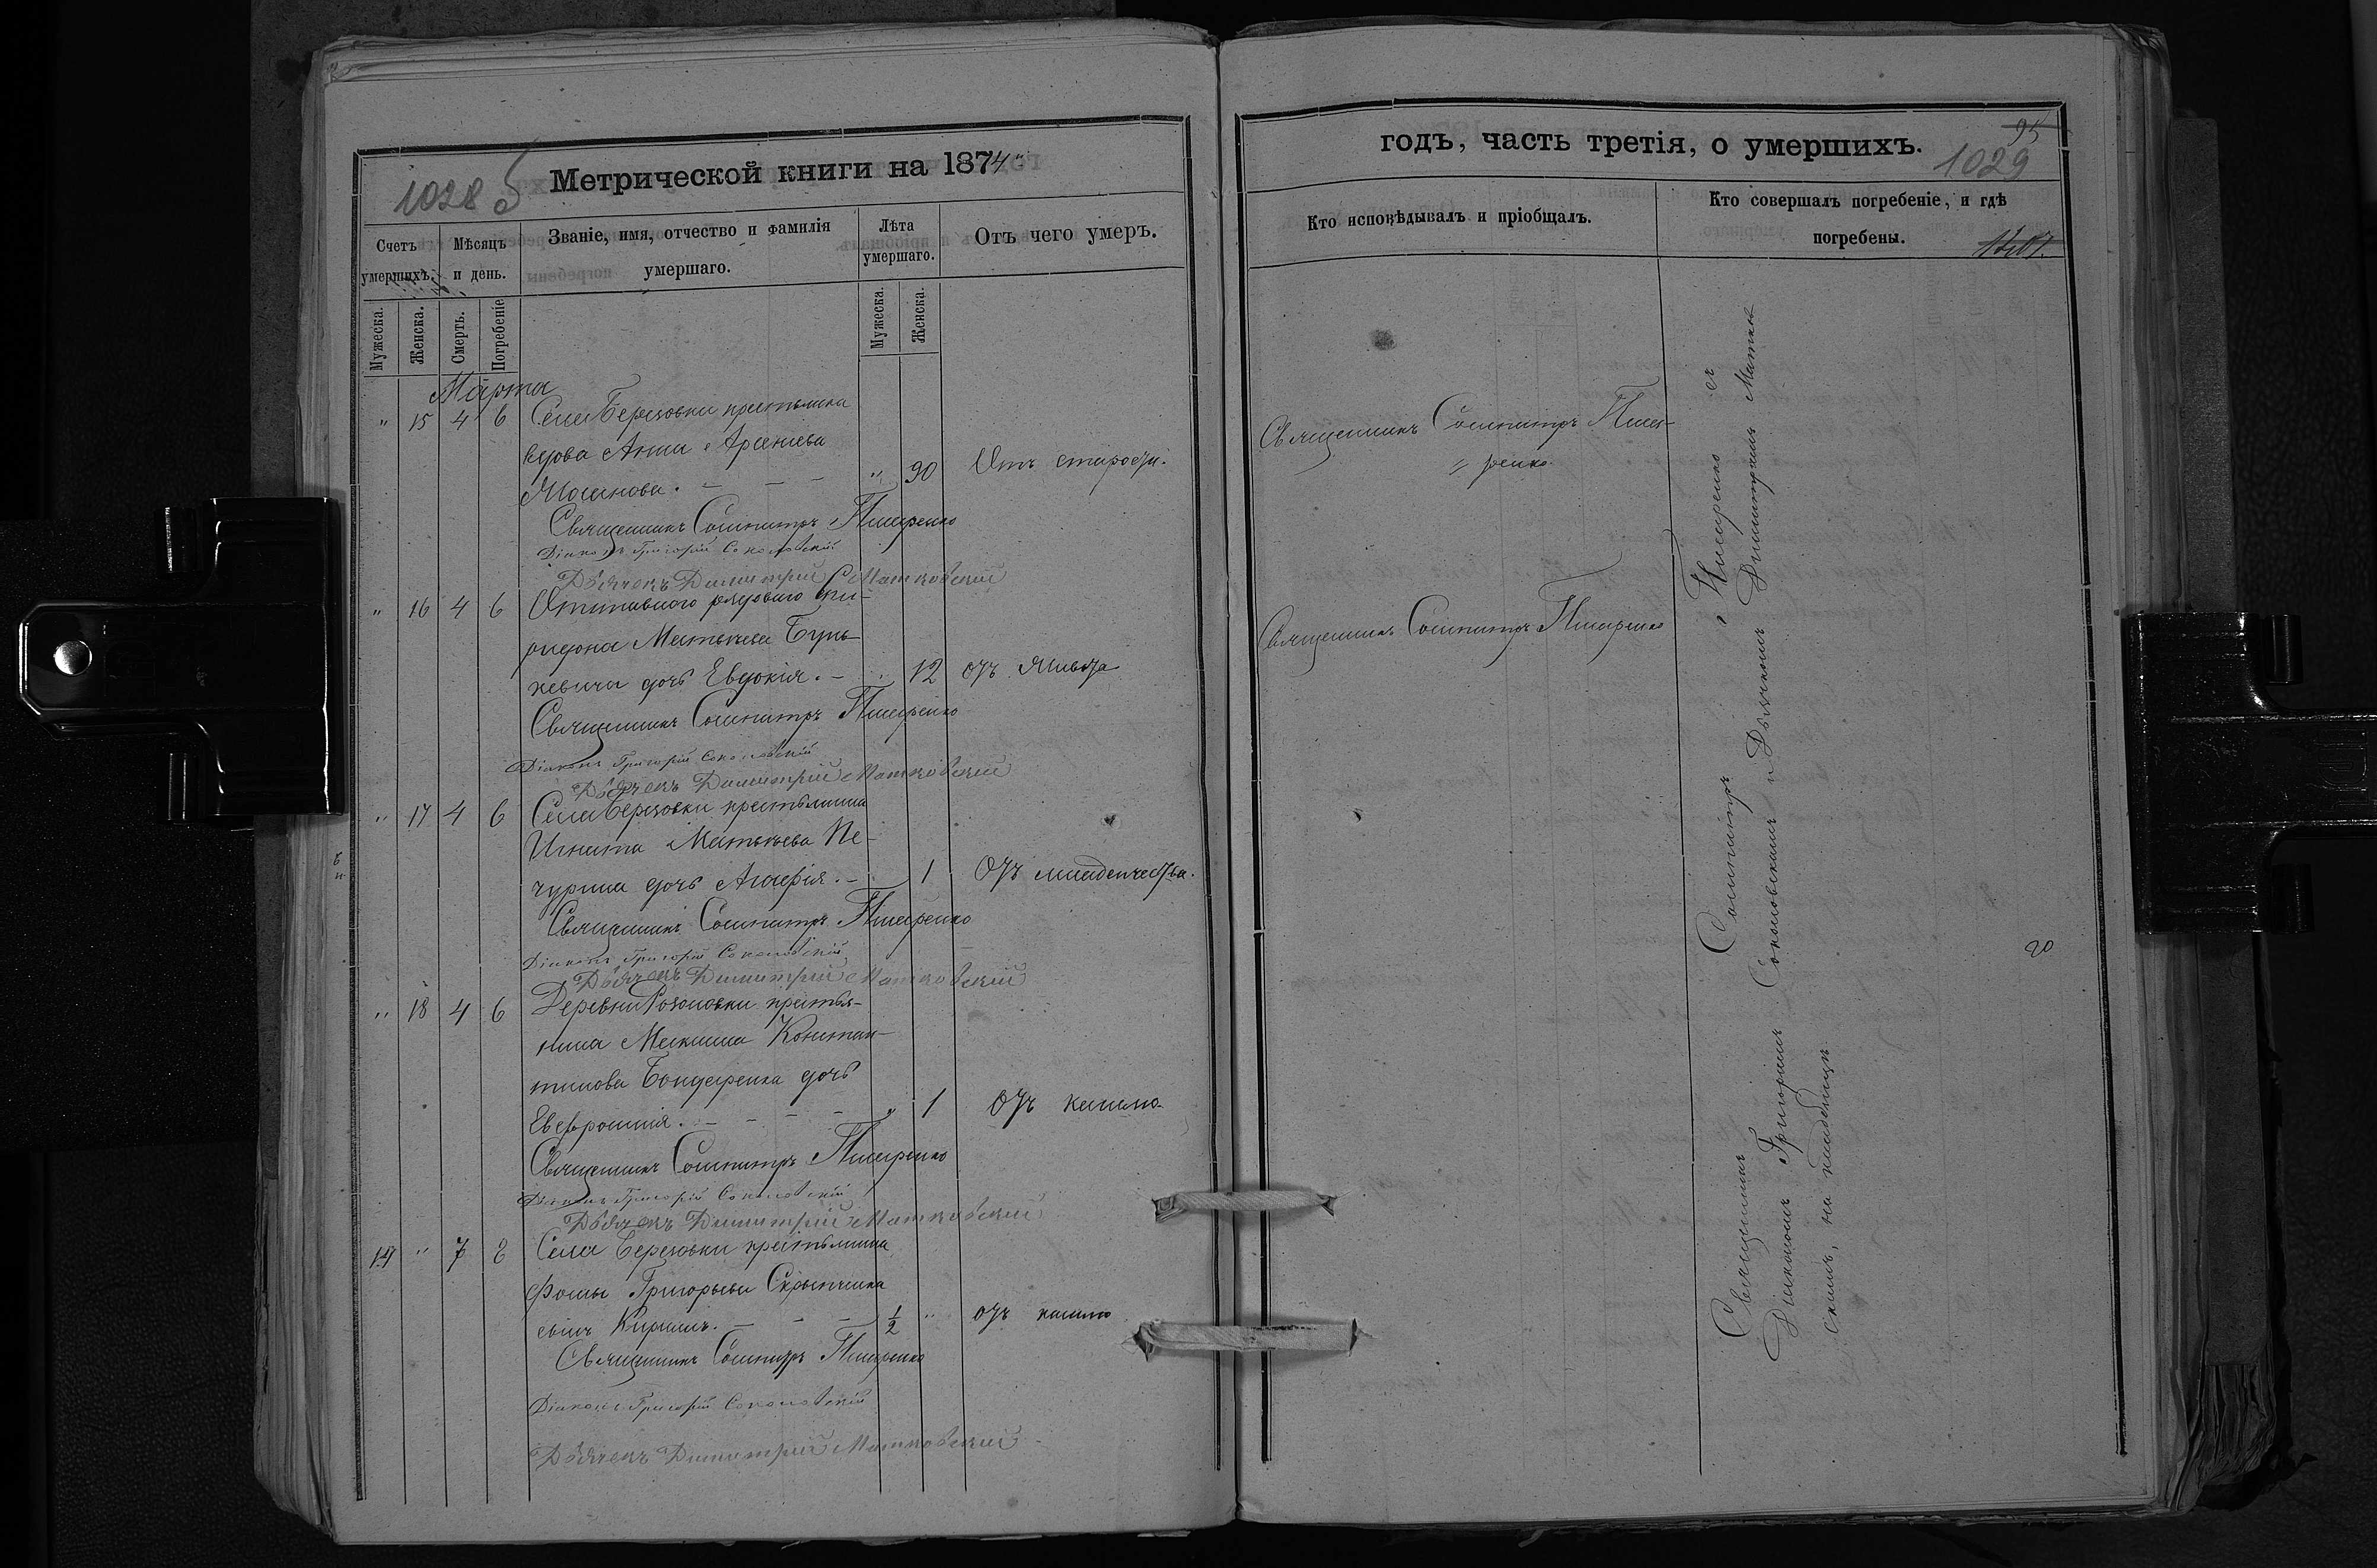 1028 б
Метрической книги на 1874
Счетъ умершихъ.
Мѣсяцъ и день.
Званіе, имя, отчество и фамилія умершаго.
Лѣта умершаго.
Отъ чего умеръ.
Мужеска.
Женска.
Смерть.
Погребеніе
Мужеска.
Женска.
Марта
" 15 4 6 Села Березовки крестьянка
вдова Анна Арсеніева
" 90 Отъ старости.
Священникъ Сосипатръ Писаренко
Діаконъ Григорій Соколовскій
Дьячекъ Димитрій Матковскій
" 16 4 6 Отставного рядового Спи-
ридона Матвѣева Бунь-
кевича дочь Евдокія. - 12 отъ
Священникъ Сосипатръ Писаренко
Діаконъ Григорій Соколовскій
Дьячекъ Димитрій Матковскій
" 17 4 6 Села Березовки крестьянина
Игната Матвѣева Пе-
чурина дочь Агафія. - 1 Отъ младенчества.
Священникъ Сосипатръ Писаренко
Діаконъ Григорій Соколовскій
Дьячекъ Димитрій Матковскій
" 18 4 6 Деревни крестья-
нина Максима Констан-
тинова Бондаренка дочь
Евфросинія. - - - " 1 Отъ кашлю
Священникъ Сосипатръ Писаренко
Діаконъ Григорій Соколовскій
Дьячекъ Димитрій Матковскій
19 " 7 8 Села Березовки крестьянина
Фомы Григорьева Скрынника
сынъ Кириллъ. - - - 1/2 " отъ кашлю
Священникъ Сосипатръ Писаренко
Діаконъ Григорій Соколовскій
Дьячекъ Димитрій Матковскій
95
годъ, часть третія, о умершихъ.
1029
Кто исповѣдывалъ и пріобщалъ.
Кто совершалъ погребеніе, и гдѣ погребены.
Священникъ Сосипатръ Писа-
ренко
Священникъ Сосипатръ Писаренко
Священникъ Сосипатръ Писаренко съ
Діакономъ Григоріемъ Соколовскимъ и Дьячкомъ Димитріемъ Матков
скимъ, на кладбищѣ